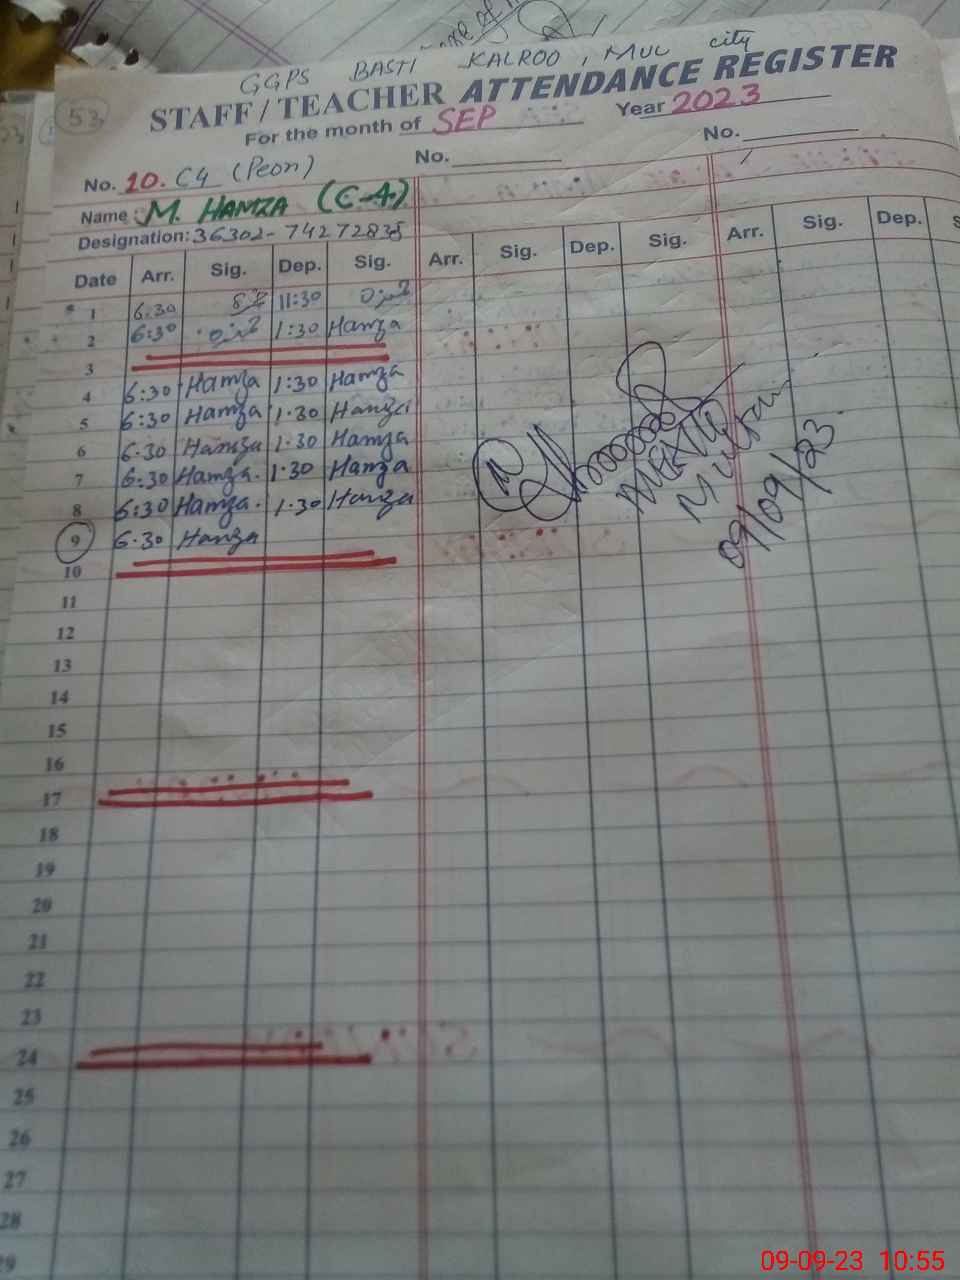 GGPS BASTI KALROO, MUL city
53
STAFF/TEACHER ATTENDANCE REGISTER
For the month of SEP Year 2023
No. 10. C4 (Peon) No. No.
Name : M. HAMZA (C-4)
Designation: 36302-74272838
Date Arr. Sig. Dep. Sig. Arr. Sig. Dep. Sig. Arr. Sig. Dep. S
1 6.30 حمزہ 11:30 حمزہ
2 6:30 حمزہ 1:30 Hamza
3
4 6:30 Hamza 1:30 Hamza
5 6:30 Hamza 1.30 Hamza
6 6.30 Hamza 1.30 Hamza
7 6:30 Hamza. 1:30 Hamza
8 6:30 Hamza. 1.30 Hamza
9 6.30 Hamza
Multan
09/09/23
10
11
12
13
14
15
16
17
18
19
20
21
22
23
24
25
26
27
28
29
09-09-23 10:55